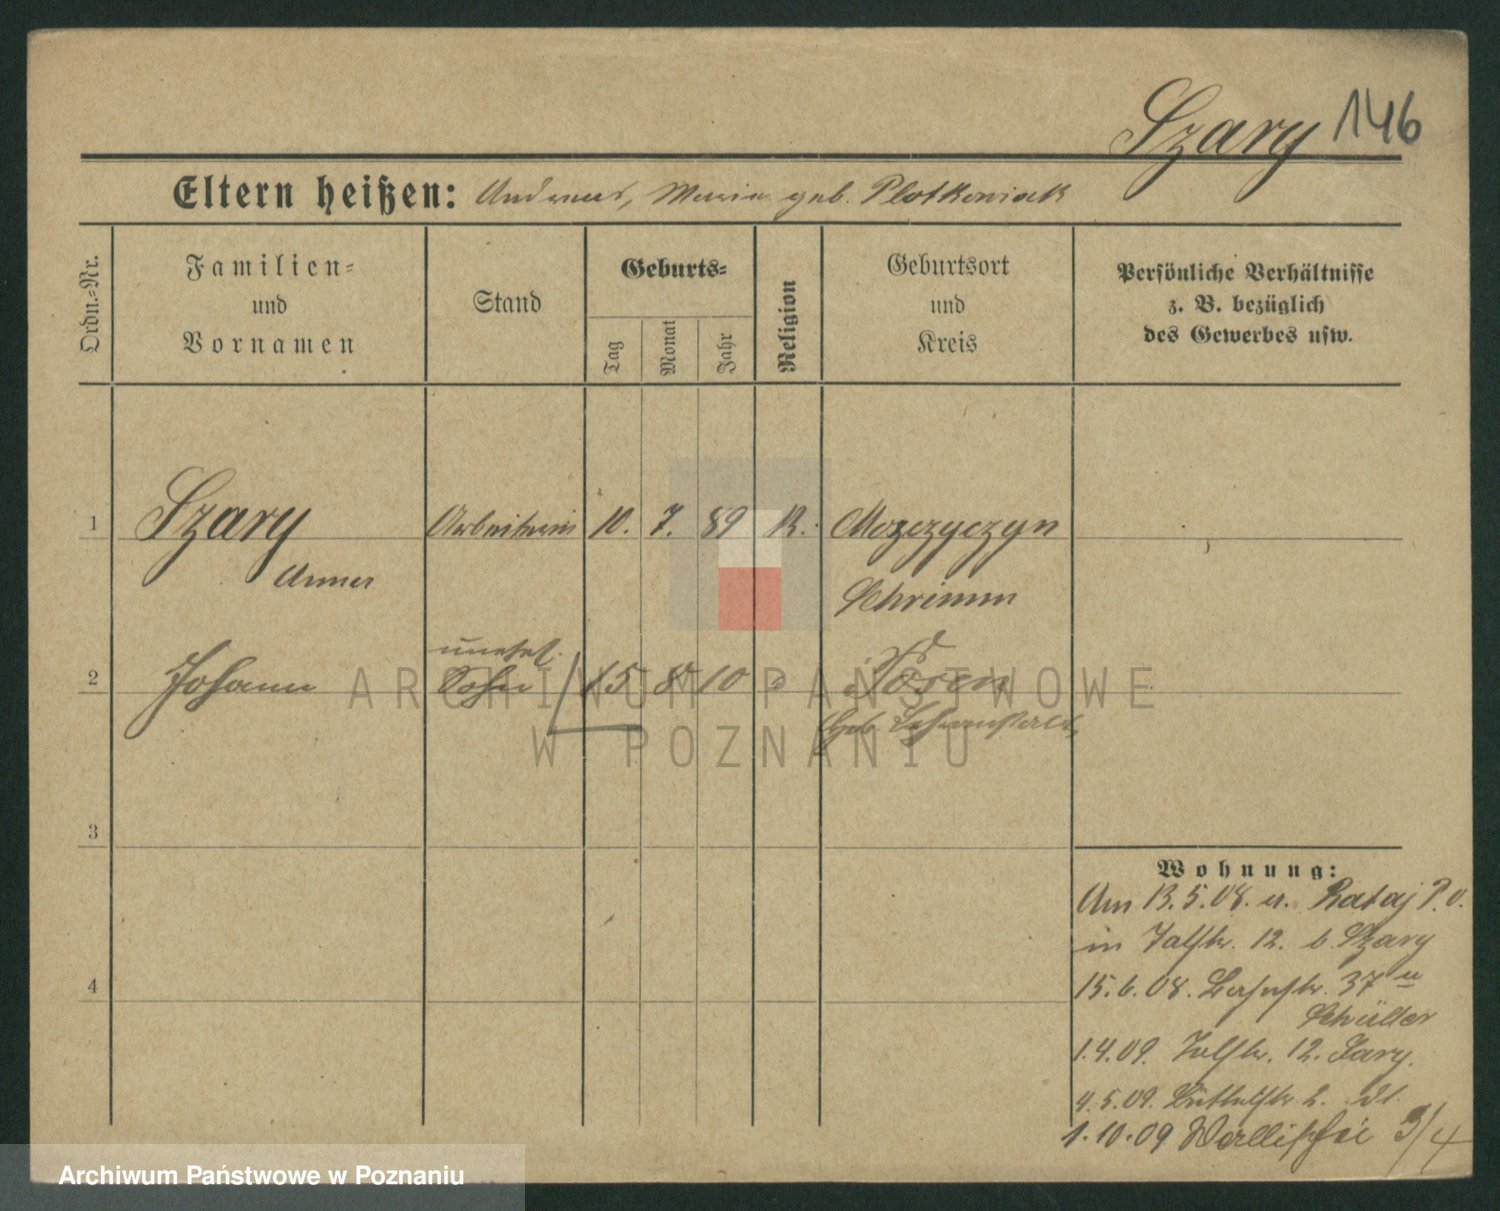 Szary 146
Eltern heißen: Andreas, Maria geb. Plotkowiak
Ordn.-Nr.
Familien-
und
Vornamen
Stand
Geburts-
Tag
Monat
Jahr
Religion
Geburtsort
und
Kreis
Persönliche Verhältnisse
z. B. bezüglich
des Gewerbes usw.
1 Szary Arbeiterin 10. 7. 89 K.
Anna Schrimm
unehel.
2 Johann Sohn 15 8 10 Posen
3
4
Wohnung:
Am 13.5.08. a. Rataj P.O.
in Talstr. 12. b. Szary
15.6.08. 37
1.4.09. Talstr. 12. Szary.
4.5.09. 2.
1.10.09 Wallischei 3/4
ARCHIWUM PAŃSTWOWE
W POZNANIU
Archiwum Państwowe w Poznaniu